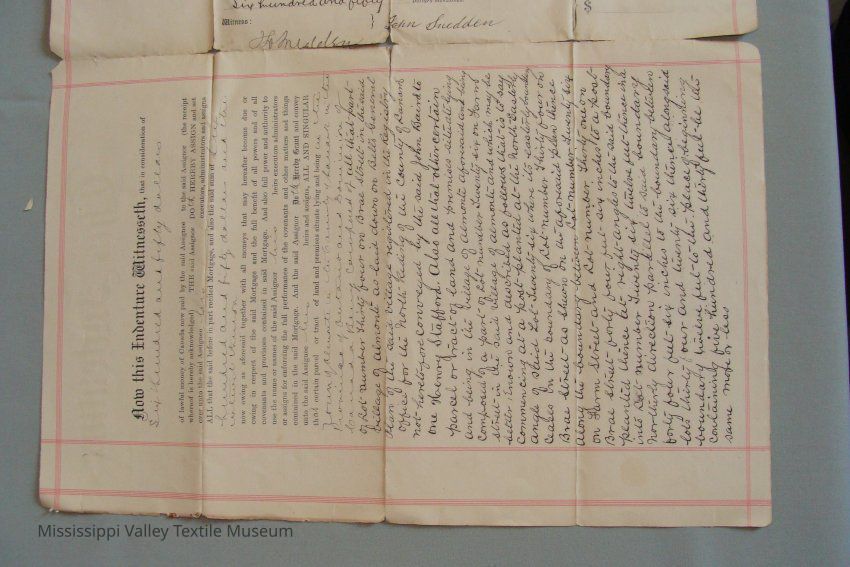 Six hundred and fifty
Witness:
John Snedden
$
Now this Indenture Witnesseth, that in consideration of
Six hundred and fifty dollars
of lawful money of Canada now paid by the said Assignee to the said Assignor (the receipt
whereof is hereby acknowledged) THE said Assignor Doth HEREBY ASSIGN and set
over unto the said Assignee executors, administrators and assigns
ALL that the said before in part recited Mortgage, and also the said sum of
hundred and fifty dollars and the
interest thereon
now owing as aforesaid together with all moneys that may hereafter become due or
owing in respect of the said Mortgage and the full benefit of all powers and of all
covenants and provisoes contained in said Mortgage. And also full power and authority to
use the name or names of the said Assignor heirs executors administrators
or assigns for enforcing the full performance of the covenants and other matters and things
contained in the said Mortgage. And the said Assignor Doth Hereby Grant and convey
unto the said Assignee heirs and assigns, ALL AND SINGULAR
that certain parcel or tract of land and premises situate lying and being in the
Village of Almonte in the County of Lanark in the
Province of Ontario and Dominion of
Canada being composed of all that part
of Lot Number Thirty four on Brae Street in the said
Village of Almonte as laid down on Bells General
Plan of the said Village registered in the Registry
Office for the North Riding of the County of Lanark
not heretofore conveyed by the said John Baird to
one Henry Stafford. Also all that other certain
parcel or tract of land and premises situate lying
and being in the Village of Almonte aforesaid being
composed of a part of Lot Number Twenty six on Farm
Street in the said Village of Almonte and which may be
better known and described as follows that is to say
Commencing at a post planted at the North Easterly
angle of Said Lot Twenty six where its easterly boundary
on the boundary of Lot Number Thirty four on
Brae Street as shown on the aforesaid plan thence
along the boundary between Lot Number Twenty six
on Farm Street and Lot Number Thirty one on
Brae Street forty four feet six inches to a post
planted thence at right angles to the said boundary
into Lot Number Twenty six twelve feet thence in a
Northerly direction parallel to said boundary
forty four feet six inches to the boundary between
lots thirty four and twenty six thence along said
boundary twelve feet to the place of beginning
containing five hundred and thirty feet be the
same more or less
Mississippi Valley Textile Museum